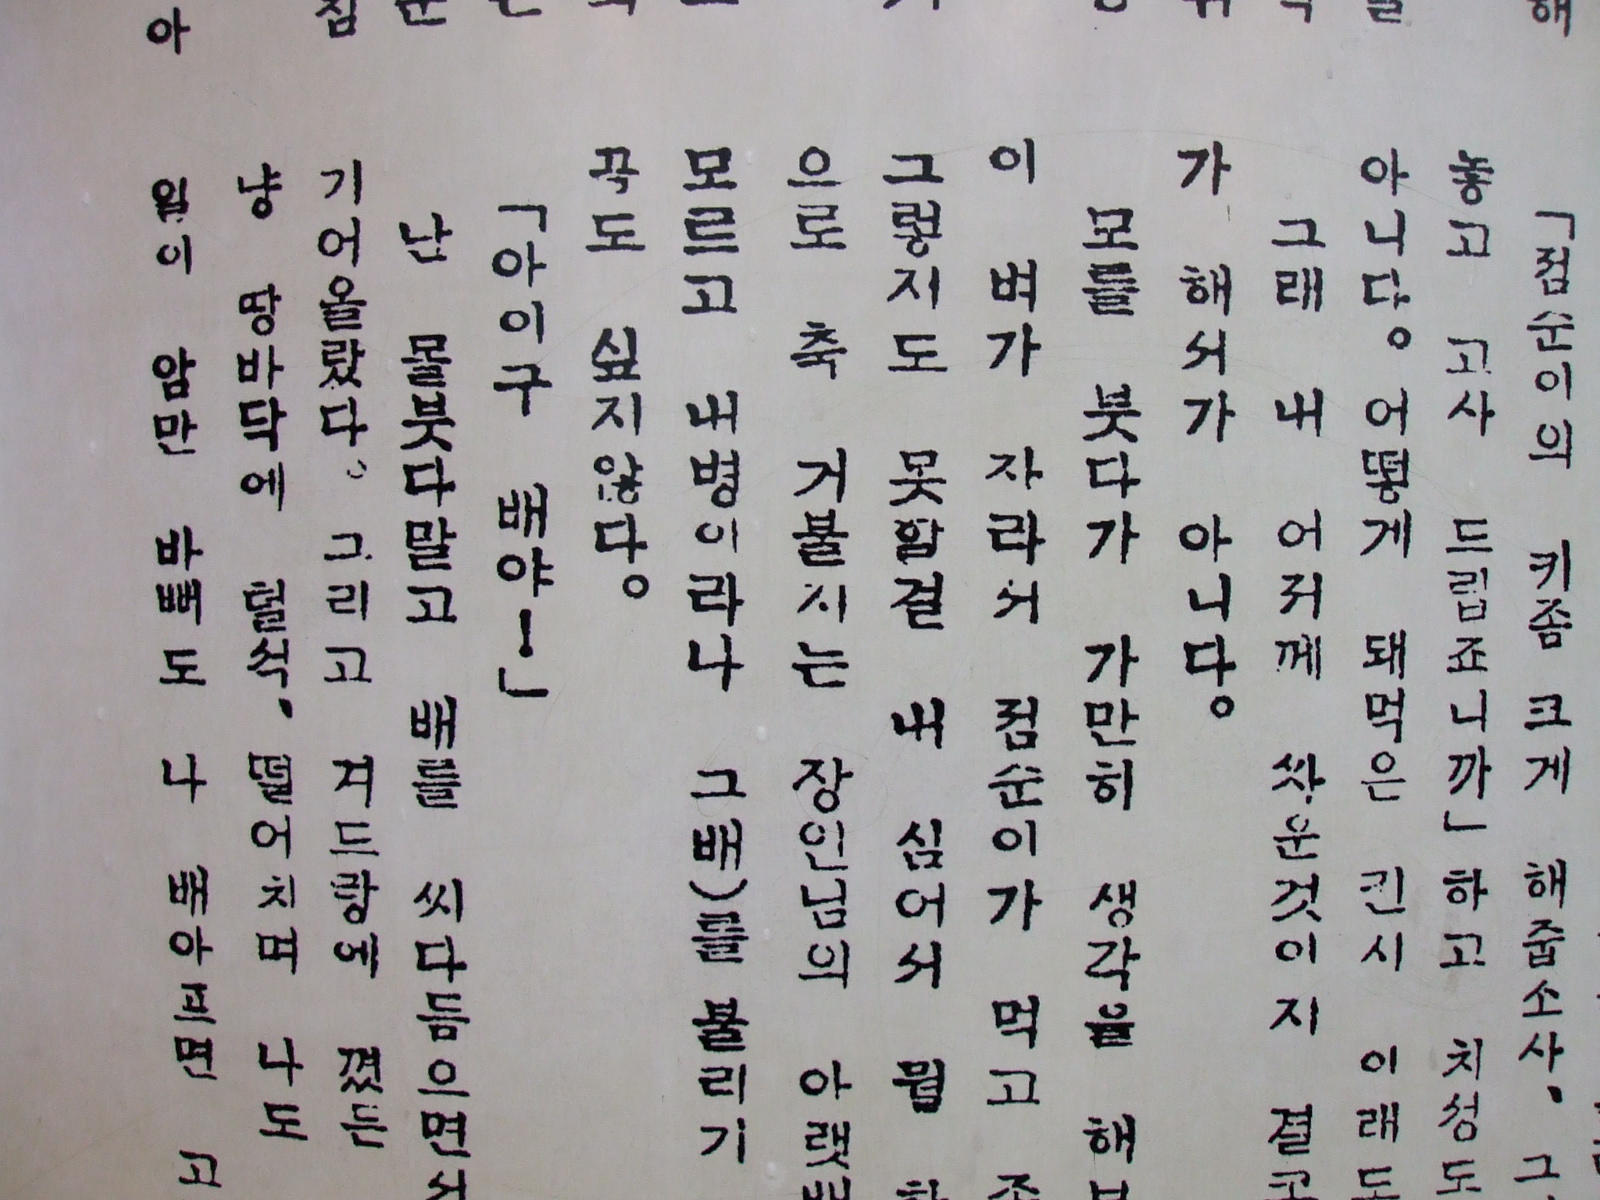 「점순이의 키좀 크게 해줍소사, 그
놓고 고사 드립죠니까」 하고 치성도
아니다。 어떻게 돼먹은 긴지 이래도
그래 내 어저께 싸운것이지 결코
가 해서가 아니다。
모를 붓다가 가만히 생각을 해보
이 벼가 자라서 점순이가 먹고 조
그렇지도 못할걸 내 심어서 뭘 하
으로 축 거불지는 장인님의 아랫배
모르고 내병이라나 그배)를 불리기
꾹도 싶지않다。
「아이구 배야!」
난 몰붓다말고 배를 씨다듬으면서
기어올랐다。 그리고 겨드랑에 꼈든
냥 땅바닥에 털석, 떨어치며 나도
일이 암만 바뻐도 나 배아프면 고